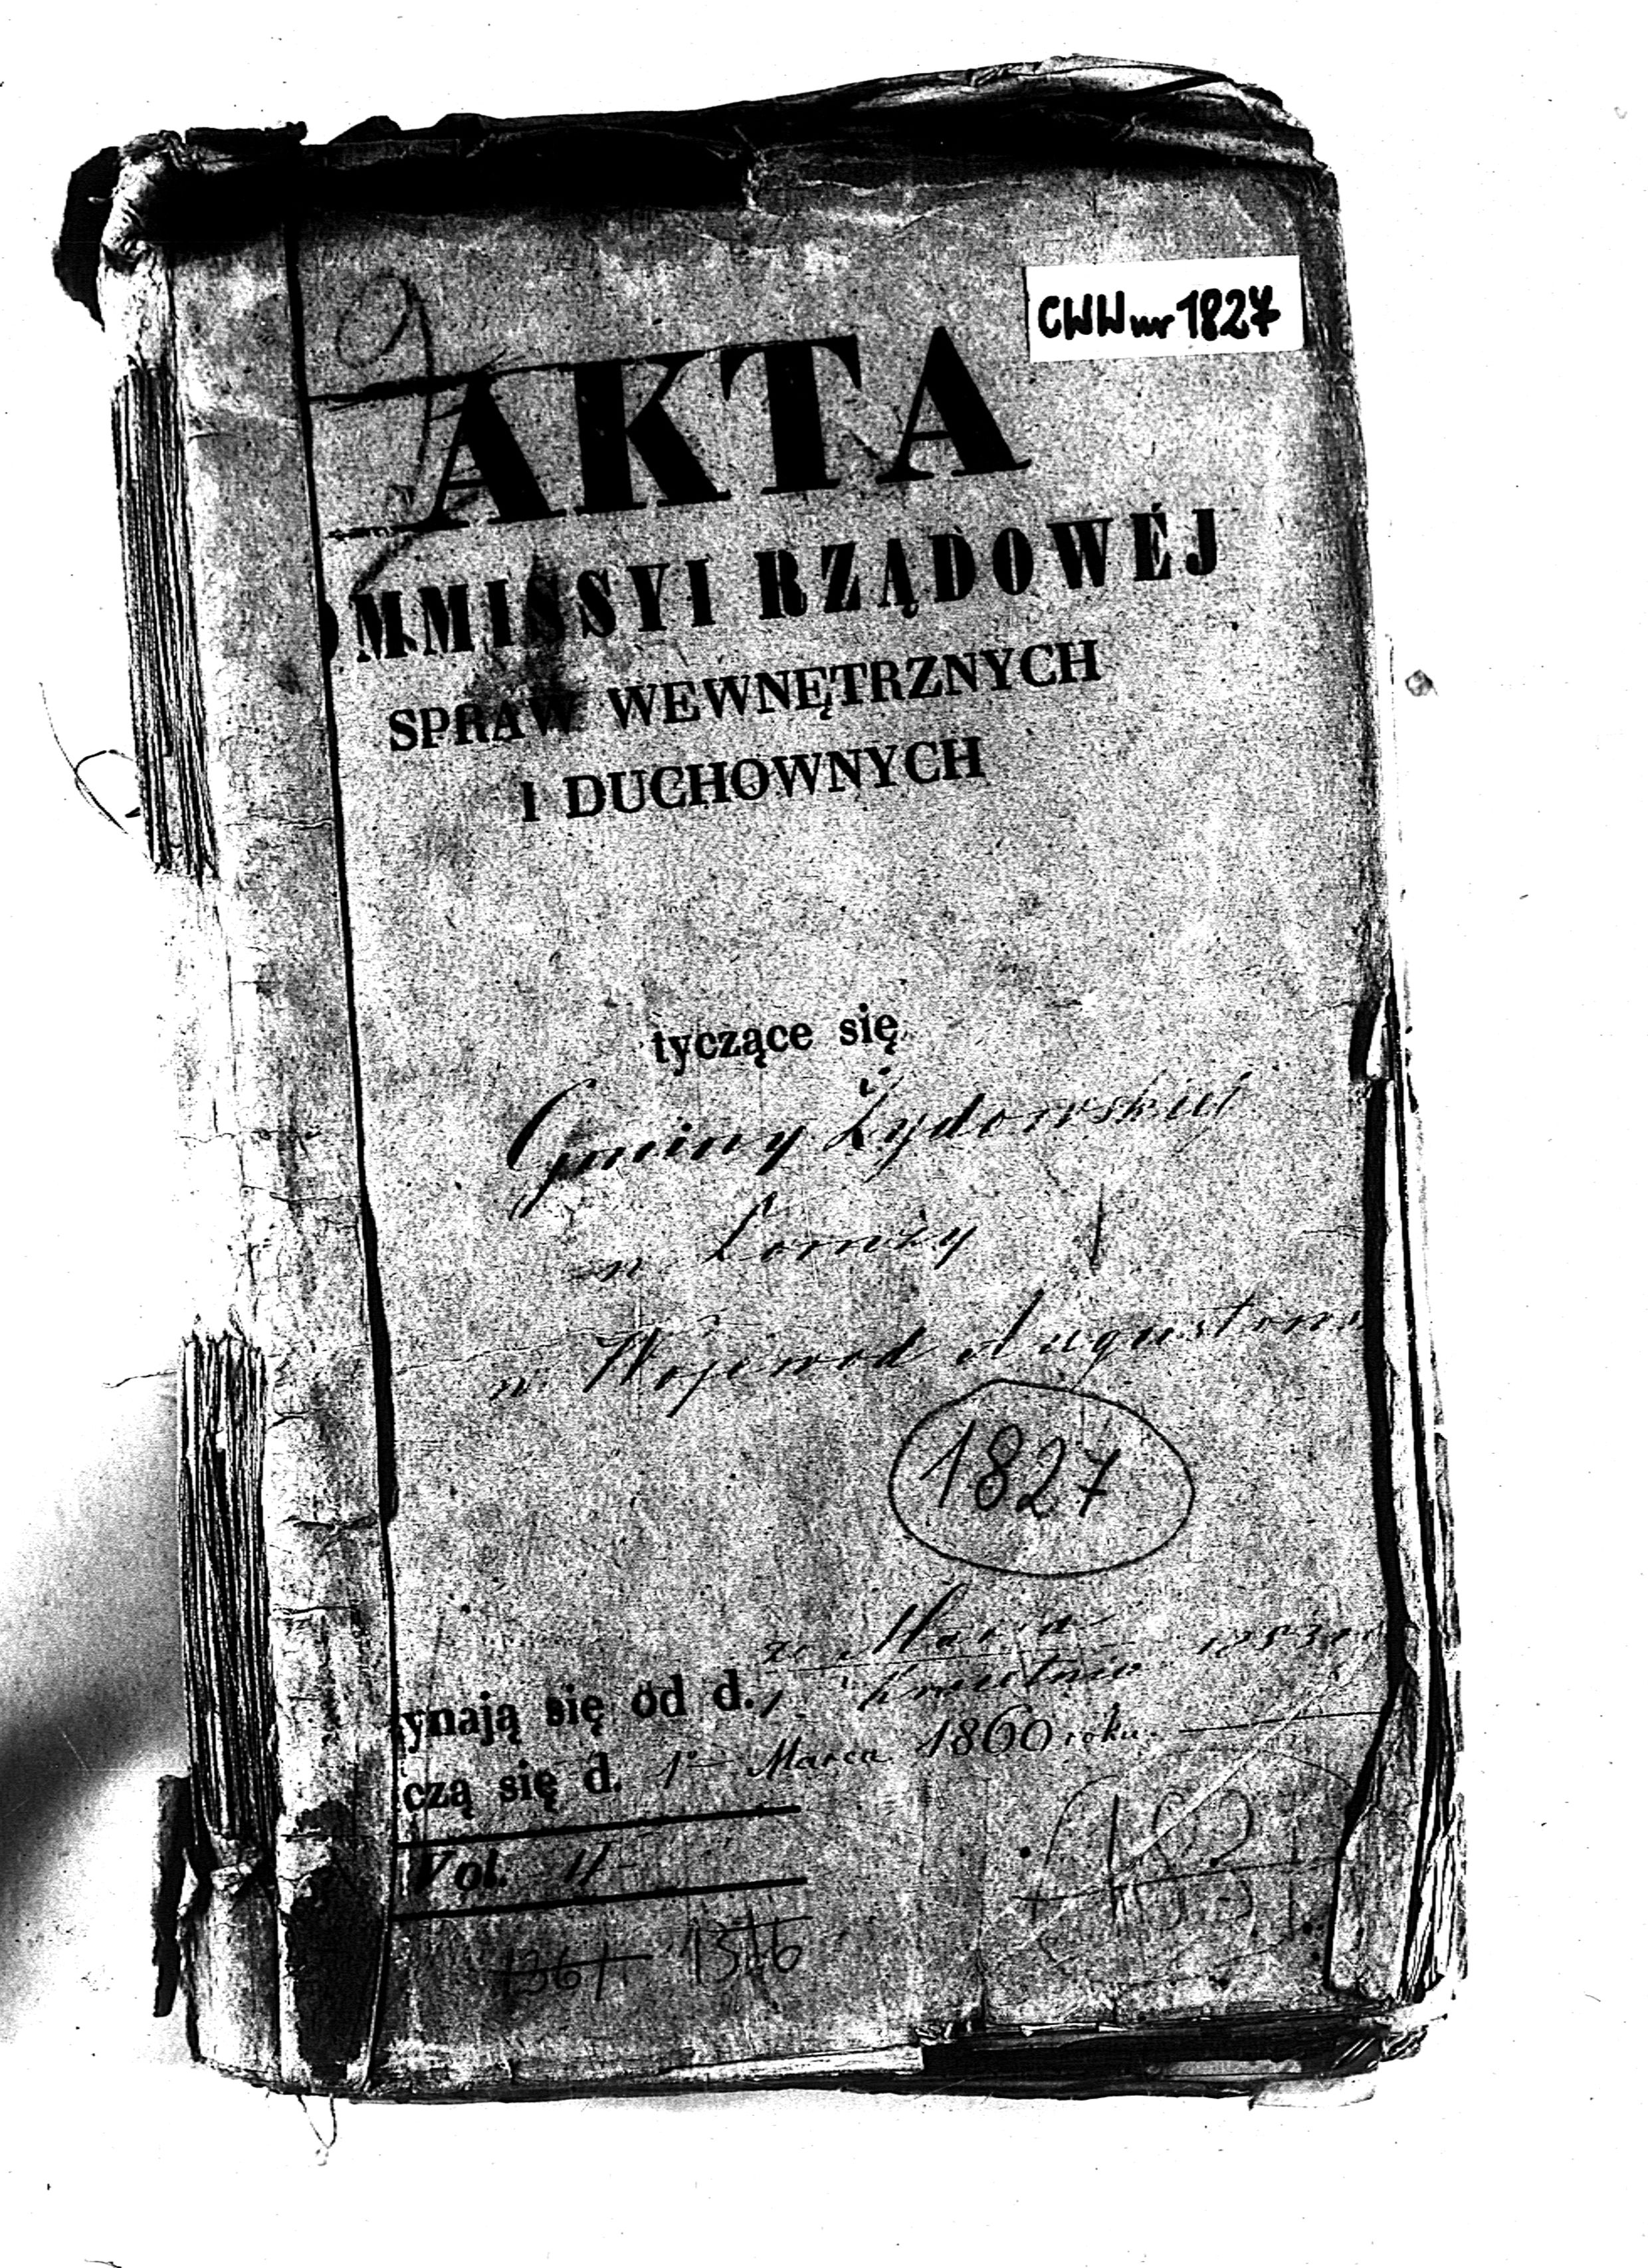 CWW nr 1827
AKTA
OMMISSYI RZĄDOWÉJ
SPRAW WEWNĘTRZNYCH
I DUCHOWNYCH
tyczące się
Gminy Żydowskiej
w Łomży
w Wojewod Augustow
1827
20 Marca
ynają się od d. 1 Kwietnia 1853 ro
czą się d. 1o Marca 1860 roku
Vol. II
1367 1376